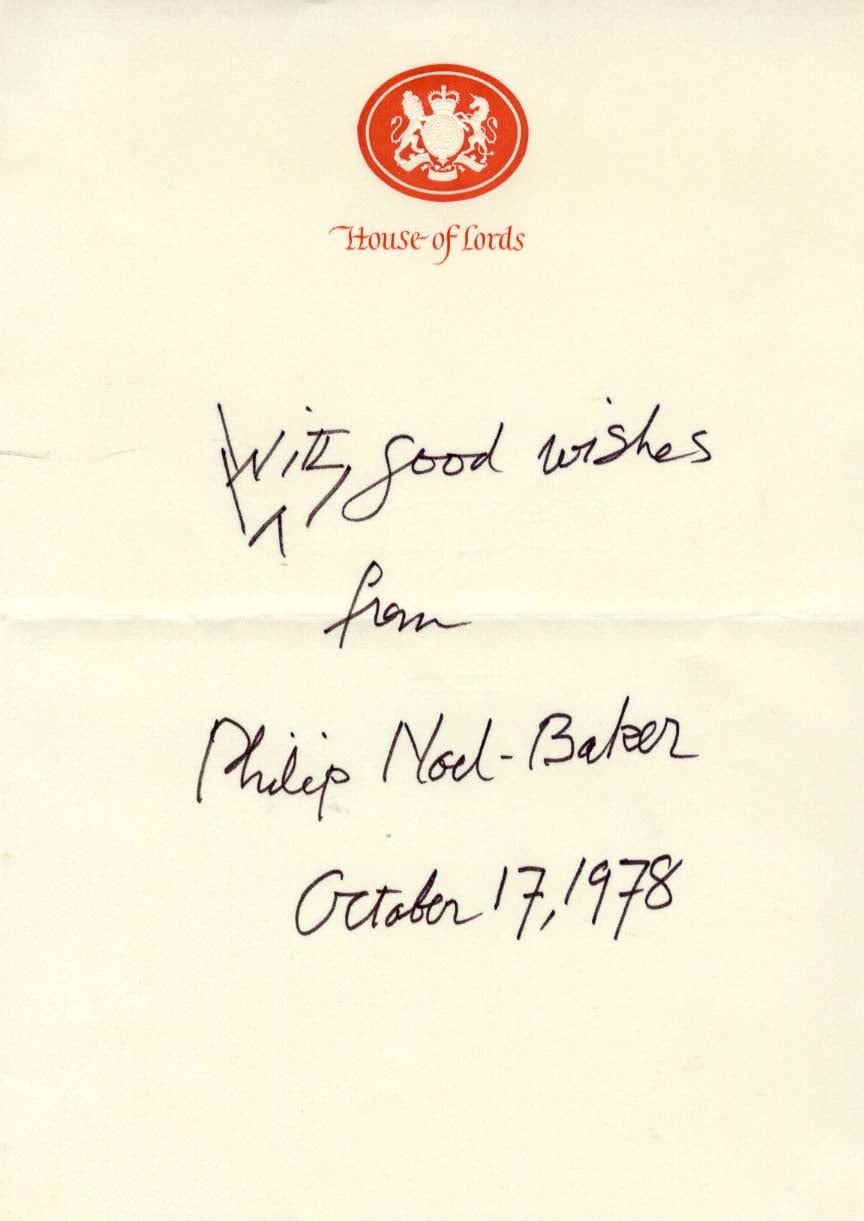 House of Lords
With good wishes
from
Philip Noel-Baker
October 17, 1978